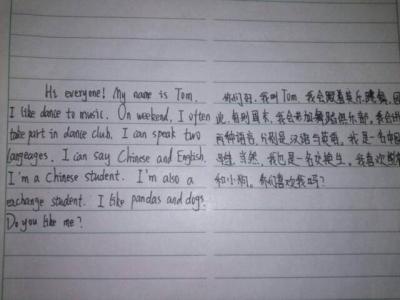 Hi everyone! My name is Tom.
I like dance to music. On weekend, I often
take part in dance club. I can speak two
langeages. I can say Chinese and English.
I'm a Chinese student. I'm also a
exchange student. I like pandas and dogs.
Do you like me?
你们好,我叫Tom。我会跟着音乐跳舞,因
此,每到周末,我会参加舞蹈俱乐部。我会讲
两种语言,分别是汉语与英语。我是一名中国
学生,当然,我也是一名交换生。我喜欢熊猫
和小狗。你们喜欢我吗?